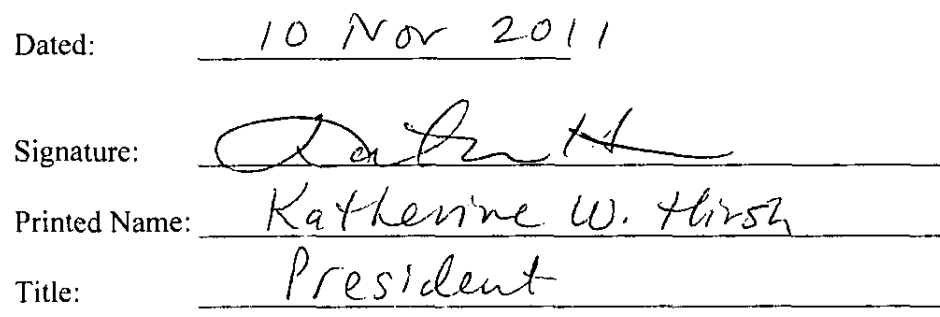 Dated: 10 Nov 2011
Signature:
Printed Name: Katherine W. Hirsh
Title: President